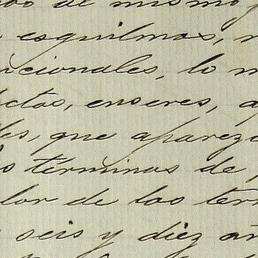 de mismo
esquilmos,
cionales, lo
ctos, enseres, a
les, que aparez
s terminos de
lor de los ter
seis y diez añ